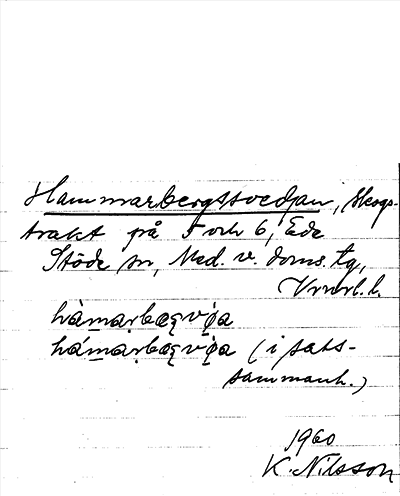 Hammarbergssvedjan, skogs-
trakt på 5 och 6, Ede
Stöde sn, Med. v. doms. tg,
Vrnrl. l.
hàmaṛbæęvi̯a
hámaṛbæęvi̯a (i sats-
sammanh.)
1960
K. Nilsson